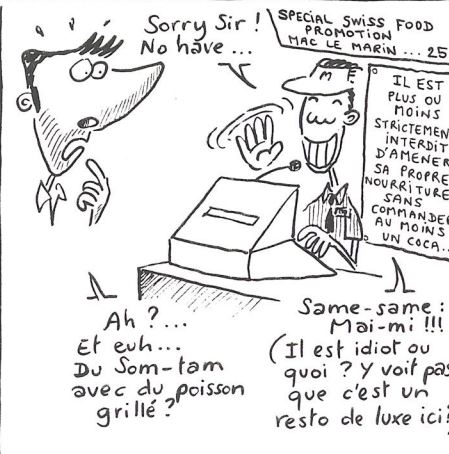 Sorry Sir !
No have ...
SPECIAL SWISS FOOD
PROMOTION
MAC LE MARIN ... 25
IL EST
PLUS OU
MOINS
STRICTEMEN
INTERDIT
D'AMENER
SA PROPRE
NOURRITURE
SANS
COMMANDER
AU MOINS
UN COCA..
M
Ah ?...
Et euh...
Du Som-tam
avec du poisson
grillé ?
Same-same :
Mai-mi !!!
(Il est idiot ou
quoi ? Y voit pas
que c'est un
resto de luxe ici!